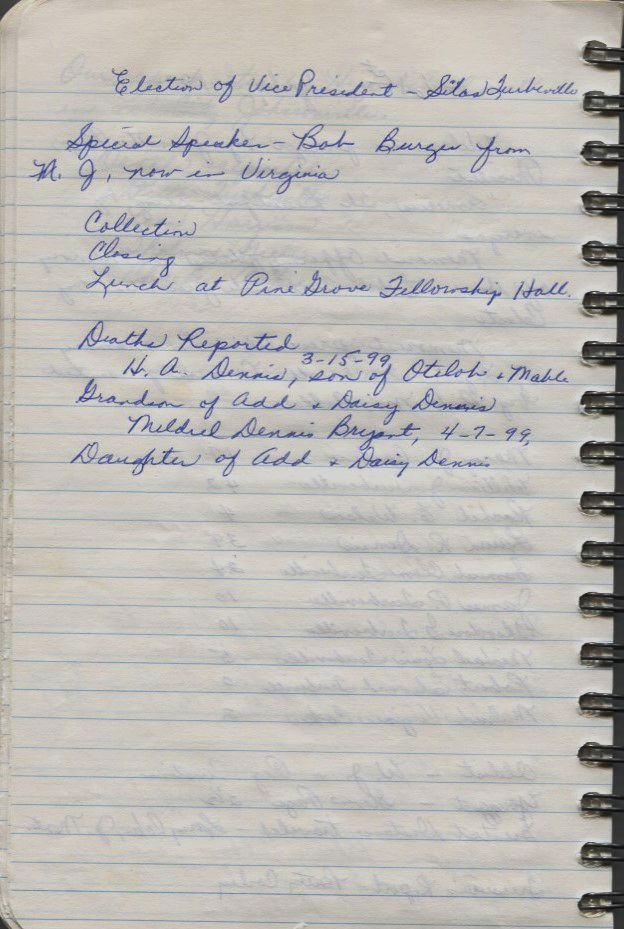 Election of Vice President - Silas Turbeville
Special Speaker - Bob Burger from
N. J, now in Virginia
Collection
Closing
Lunch at Pine Grove Fellowship Hall.
Deaths Reported
H. A. Dennis, 3-15-99, son of Oteloh + Mable
Grandson of Add + Daisy Dennis
Mildred Dennis Bryant, 4-7-99,
Daughter of Add + Daisy Dennis